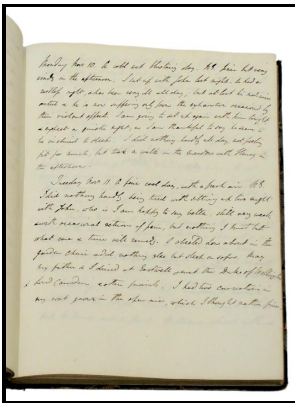 Monday Nov 10 A cold wet blustering day. W.S. fair but very
windy in the afternoon. I sat up with John last night. He had a
restless night, & has been very ill all day, but at last he
and he is now suffering only from the exhaustion occasioned by
their violent effects. I am going to sit up again with him tonight
& expect a quieter night, as I am thankful to say he seems to
be inclined to sleep. I did nothing hardly all day not feeling
fit for much, but took a walk in the meadows with
the afternoon.
Tuesday Nov 11 A fair cool day, with a fresh air. W.S.
I did nothing hardly being tired with sitting up two nights
with John, who is I am happy to say better, still very weak
with occasional returns of pain, but nothing I trust but
what care & time will remedy. I about in the
garden chair & did nothing else but sleep on sofas. Mary
my father & I dined at & met the Duke of Wellington
& Lord Camden & other people. I had two carnations in
my coat grown in the open air, which I thought rather fine